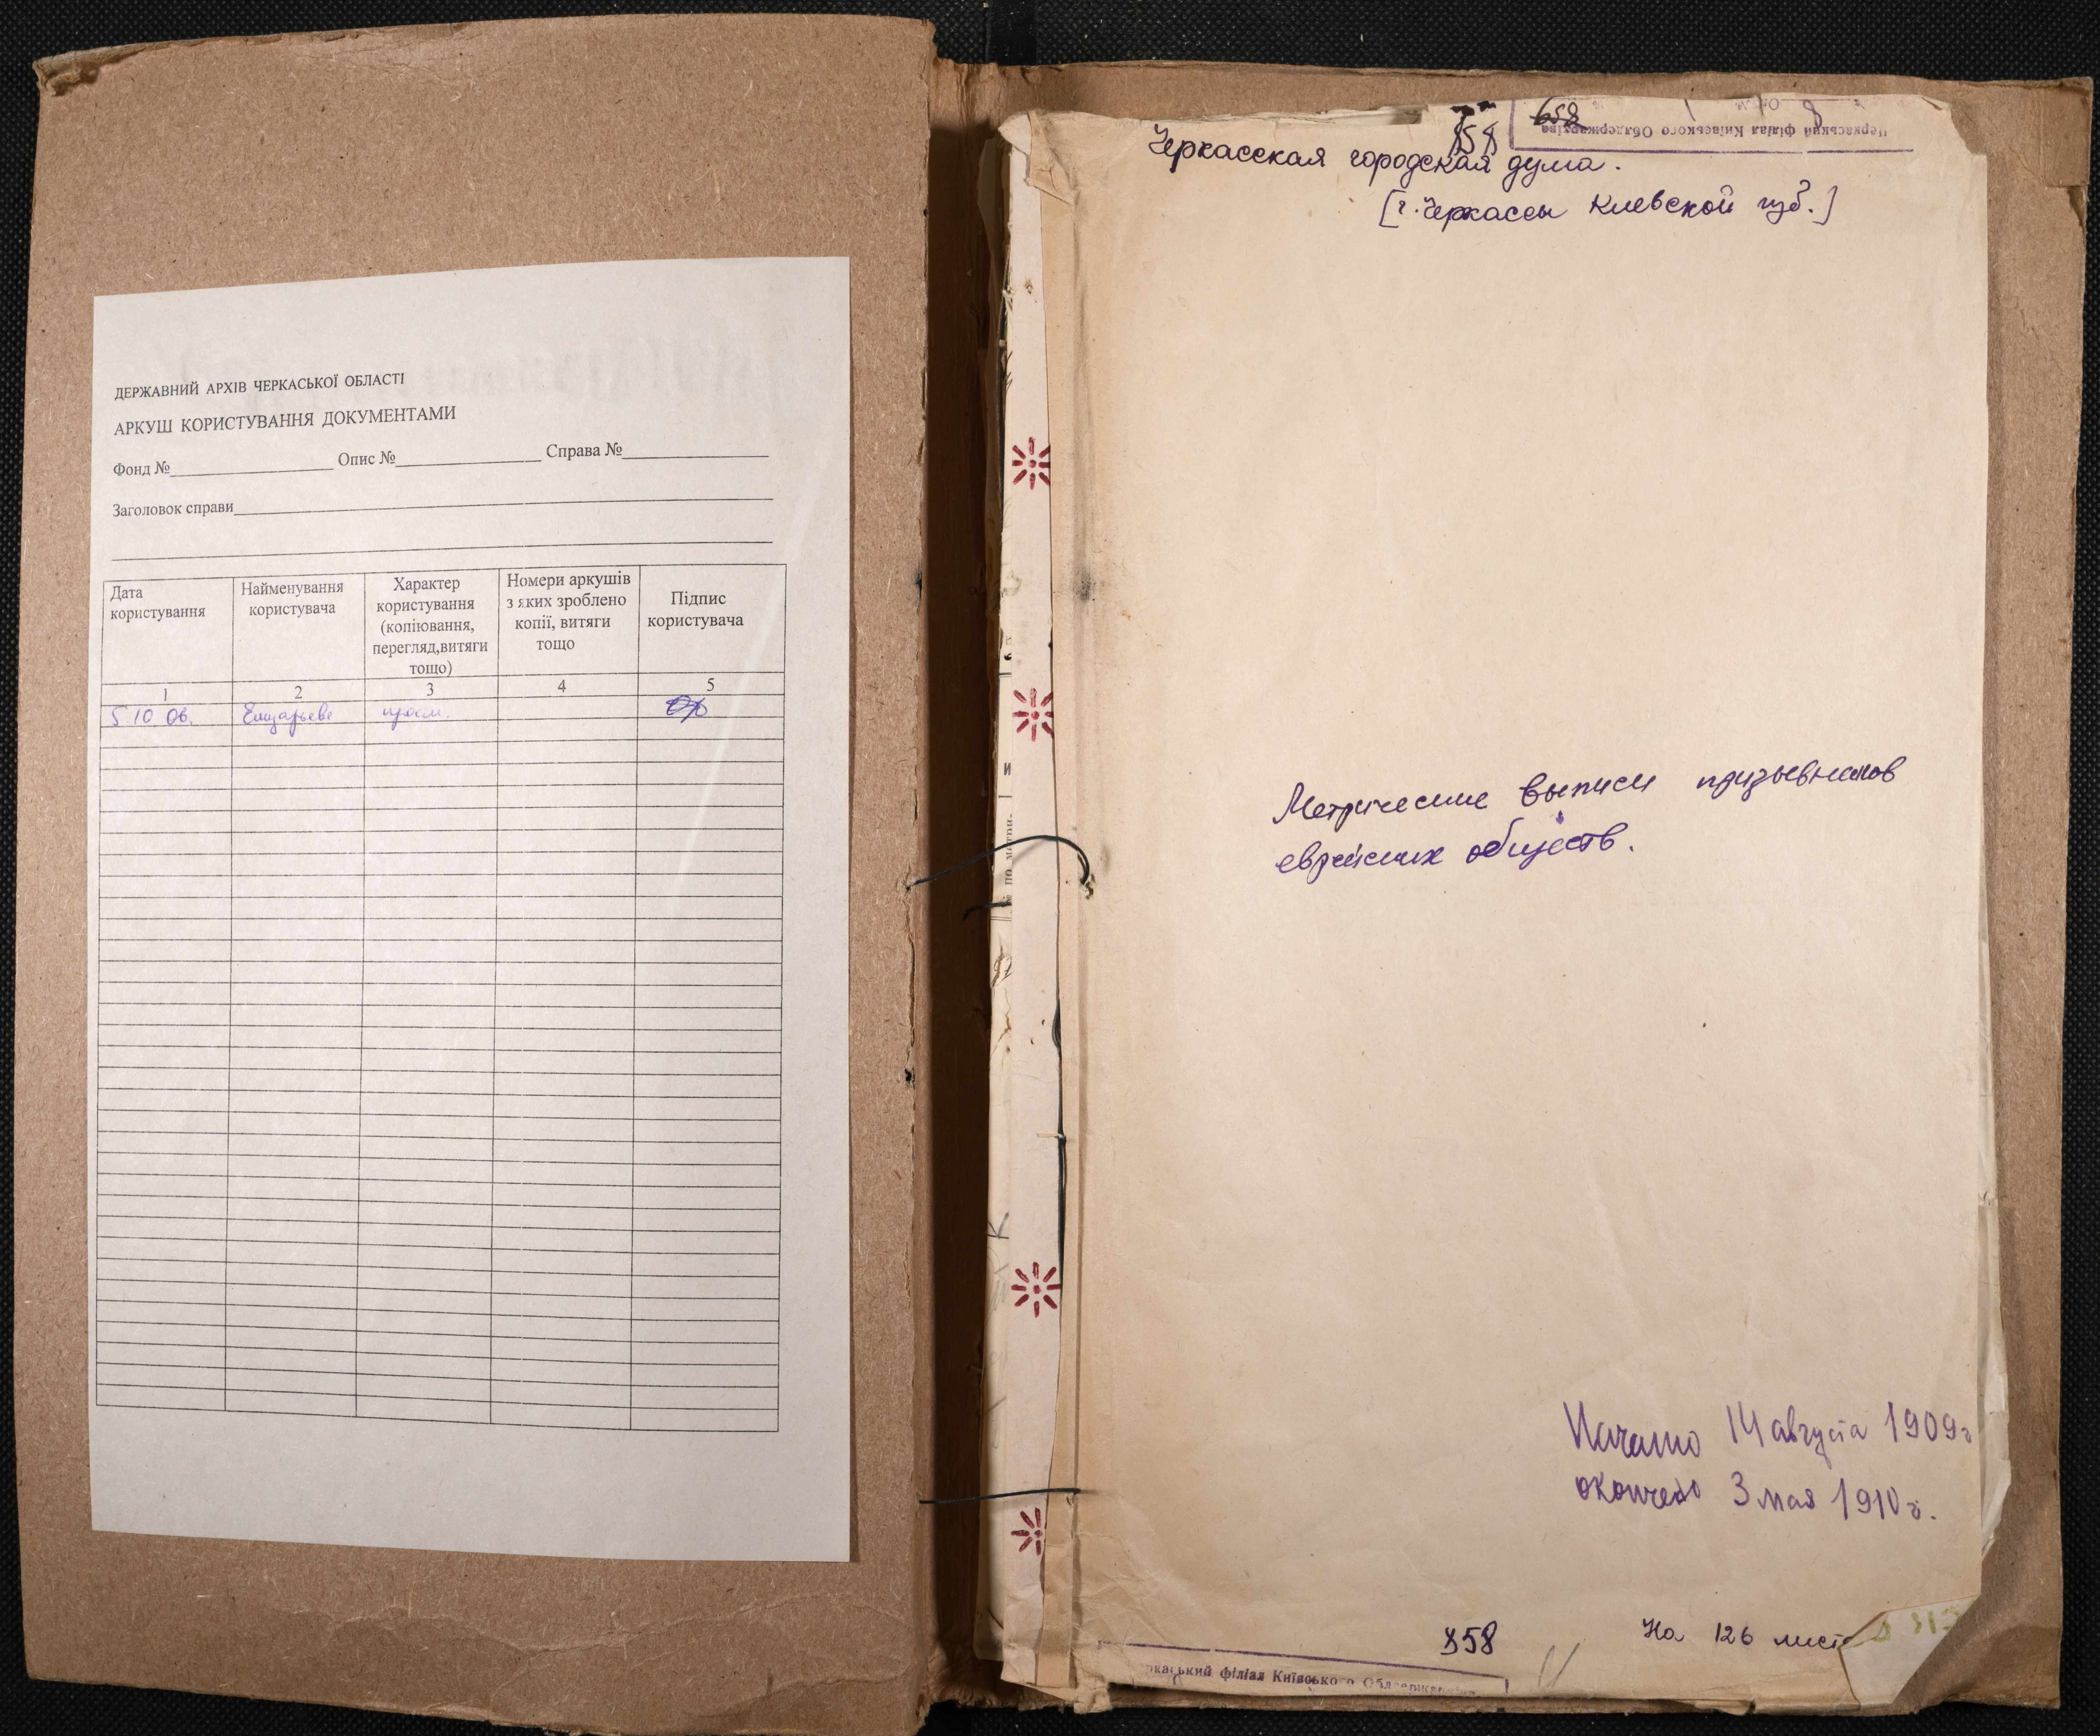 ДЕРЖАВНИЙ АРХІВ ЧЕРКАСЬКОЇ ОБЛАСТІ
АРКУШ КОРИСТУВАННЯ ДОКУМЕНТАМИ
Фонд №____________ Опис №____________ Справа №____________
Заголовок справи____________
Дата користування
Найменування користувача
Характер користування (копіювання, перегляд,витяги тощо)
Номери аркушів з яких зроблено копії, витяги тощо
Підпис користувача
1 2 3 4 5
5 10 06. просм.
658
Черкаський філіал Київського Облдержархіва
Черкасская городская дума.
[г. Черкассы Киевской губ.]
Метрические выписи призывников
еврейских обществ.
Начато 14 августа 1909г
окончено 3 мая 1910г.
858
На 126 листа
ркаський філіал Київського Облдержархіва